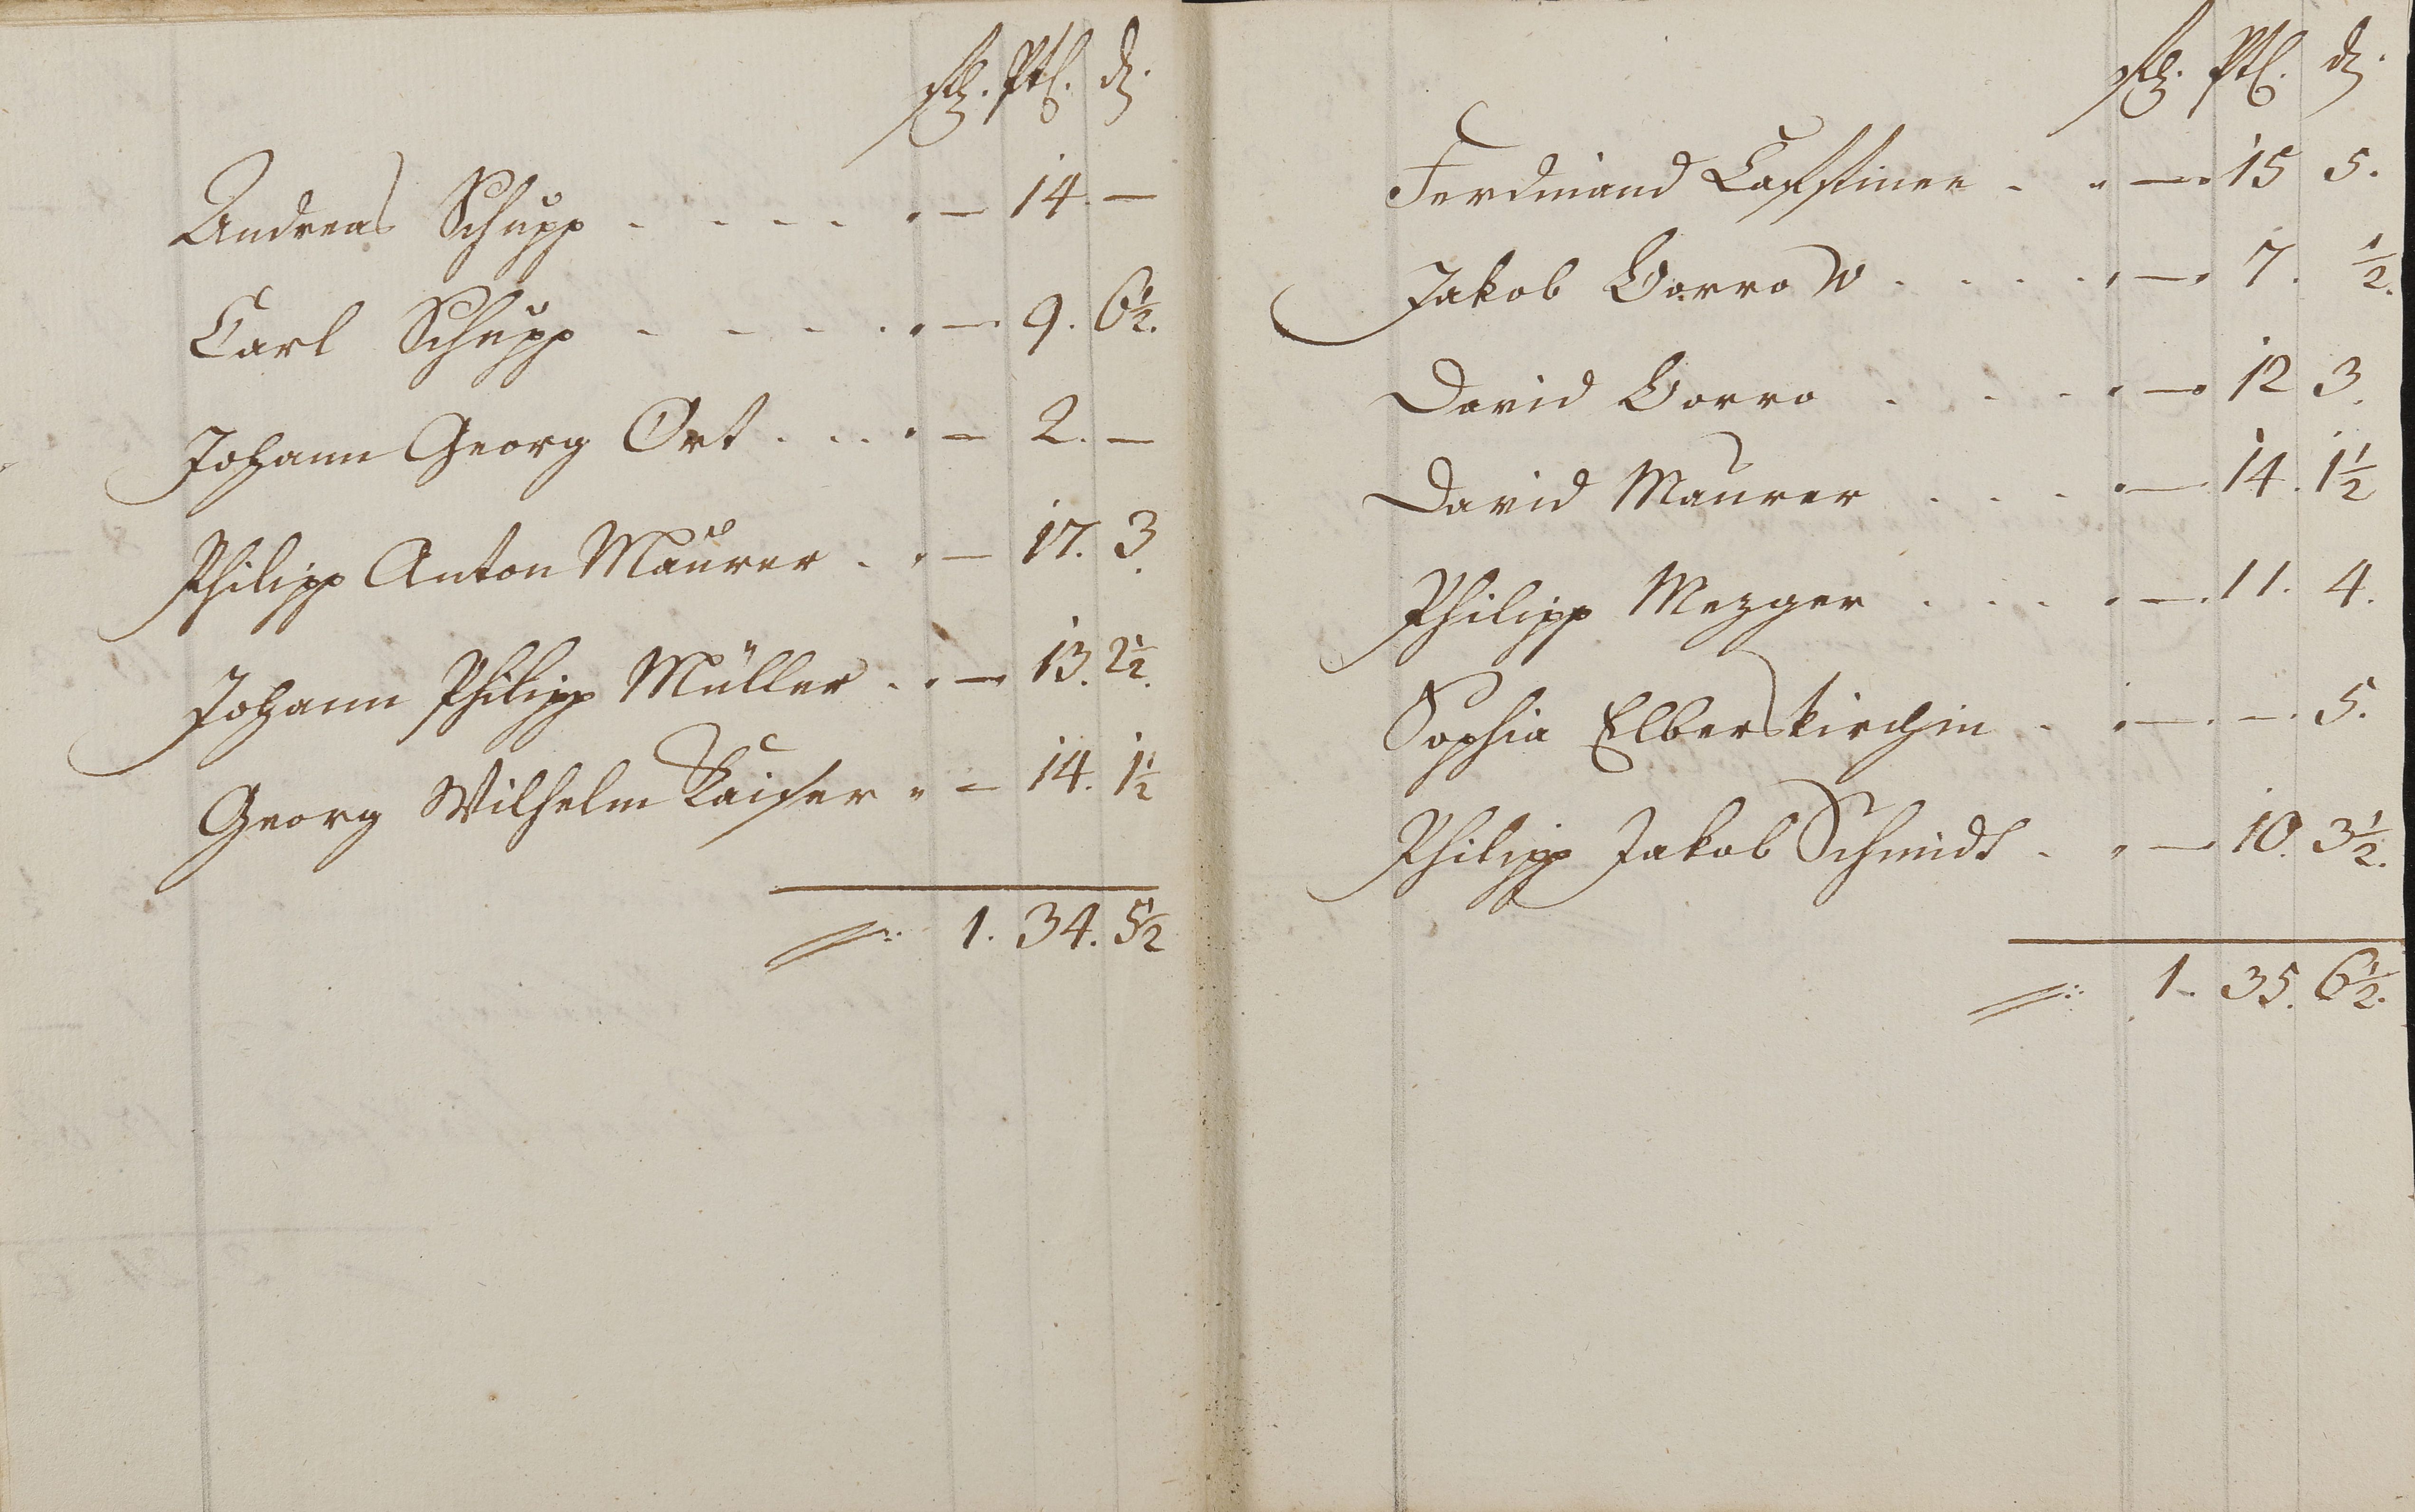 fl. Btz. d.
Andreas Schupp - - - - - . — 14. —
Carl Schupp - - - - . — 9. 6½.
Johann Georg Ort . . . . — 2. —
Philipp Anton Maurer . . — 17. 3.
Johann Philipp Müller . . — 13. 2½.
Georg Wilhelm Kaiser . — 14. 1½
1. 34. 5½
fl. Btz. d.
Ferdinand - . — 15 5.
Jakob Gorro W . . . . . — 7. ½.
David Gorro . . . . — 12 3.
David Maurer . . . . — 14. 1½
Philipp Mezger . . . . — 11. 4.
Sophia Elberskirchin . . — . — . 5.
Philipp Jakob Schmidt . . — 10. 3½.
1. 35. 6½.